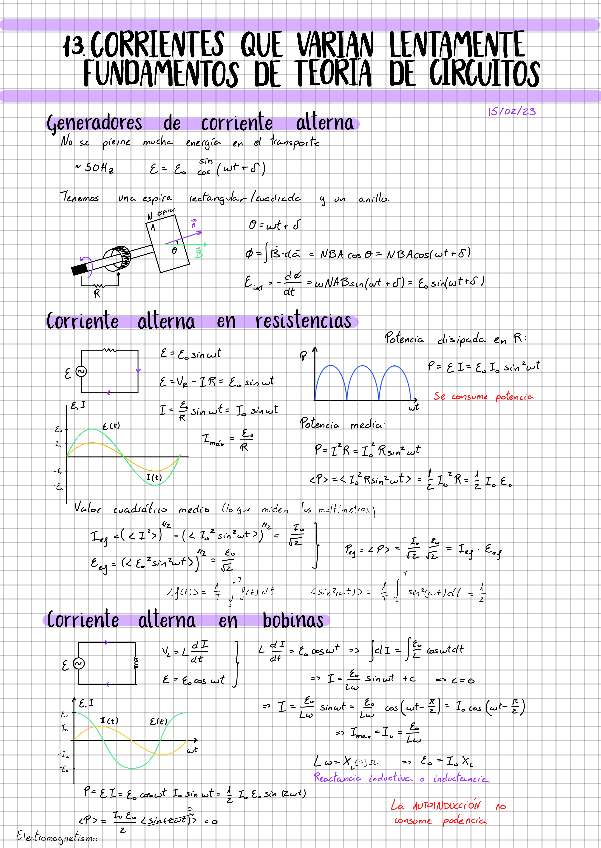 13. CORRIENTES QUE VARIAN LENTAMENTE
FUNDAMENTOS DE TEORÍA DE CIRCUITOS
15/02/23
Generadores de corriente alterna
No se pierne mucha energía en el transporte
~ 50Hz ε = ε₀ sin/cos (ωt + δ)
Tenemos una espira rectangular/cuadrada y un anillo.
N espiras
A
n
θ
B
R
θ = ωt + δ
ϕ = ∫B·da = NBA cos θ = NBA cos(ωt + δ)
ε_ind = -dϕ/dt = ωNAB sin(ωt + δ) = ε₀ sin(ωt + δ)
Corriente alterna en resistencias
ε
ε = ε₀ sin ωt
ε = V_R - IR = ε₀ sin ωt
I = ε₀/R sin ωt = I₀ sin ωt
I_máx = ε₀/R
ε, I
ε₀
I₀
-I₀
-ε₀
ε(t)
I(t)
Potencia disipada en R:
P
ωt
P = ε I = ε₀ I₀ sin²ωt
Se consume potencia
Potencia media:
P = I²R = I₀² R sin²ωt
<P> = <I₀² R sin²ωt> = 1/2 I₀² R = 1/2 I₀ ε₀
Valor cuadrático medio (lo que miden los multímetros)
I_ef = (<I²>)^1/2 = (<I₀² sin²ωt>)^1/2 = I₀/√2
ε_ef = (<ε₀² sin²ωt>)^1/2 = ε₀/√2
P_ef = <P> = I₀/√2 ε₀/√2 = I_ef · ε_ef
<f(t)> = 1/T ∫₀ᵀ f(t) dt <sin²(ωt)> = 1/T ∫₀ᵀ sin²(ωt) dt = 1/2
Corriente alterna en bobinas
ε
V_L = L dI/dt
ε = ε₀ cos ωt
L dI/dt = ε₀ cos ωt ⇒ ∫dI = ∫ε₀/L cos ωt dt
⇒ I = ε₀/Lω sin ωt + c ⇒ c = 0
⇒ I = ε₀/Lω sin ωt = ε₀/Lω cos(ωt - π/2) = I₀ cos(ωt - π/2)
⇒ I_max = I₀ = ε₀/Lω
ε, I
ε₀
I₀
-I₀
-ε₀
I(t)
ε(t)
ωt
Lω = X_L (Ω) ⇒ ε₀ = I₀ X_L
Reactancia inductiva o inductancia
P = ε I = ε₀ cos ωt I₀ sin ωt = 1/2 I₀ ε₀ sin (2ωt)
<P> = I₀ ε₀/2 <sin(2ωt)> = 0
La AUTOINDUCCIÓN no
consume potencia
Electromagnetismo